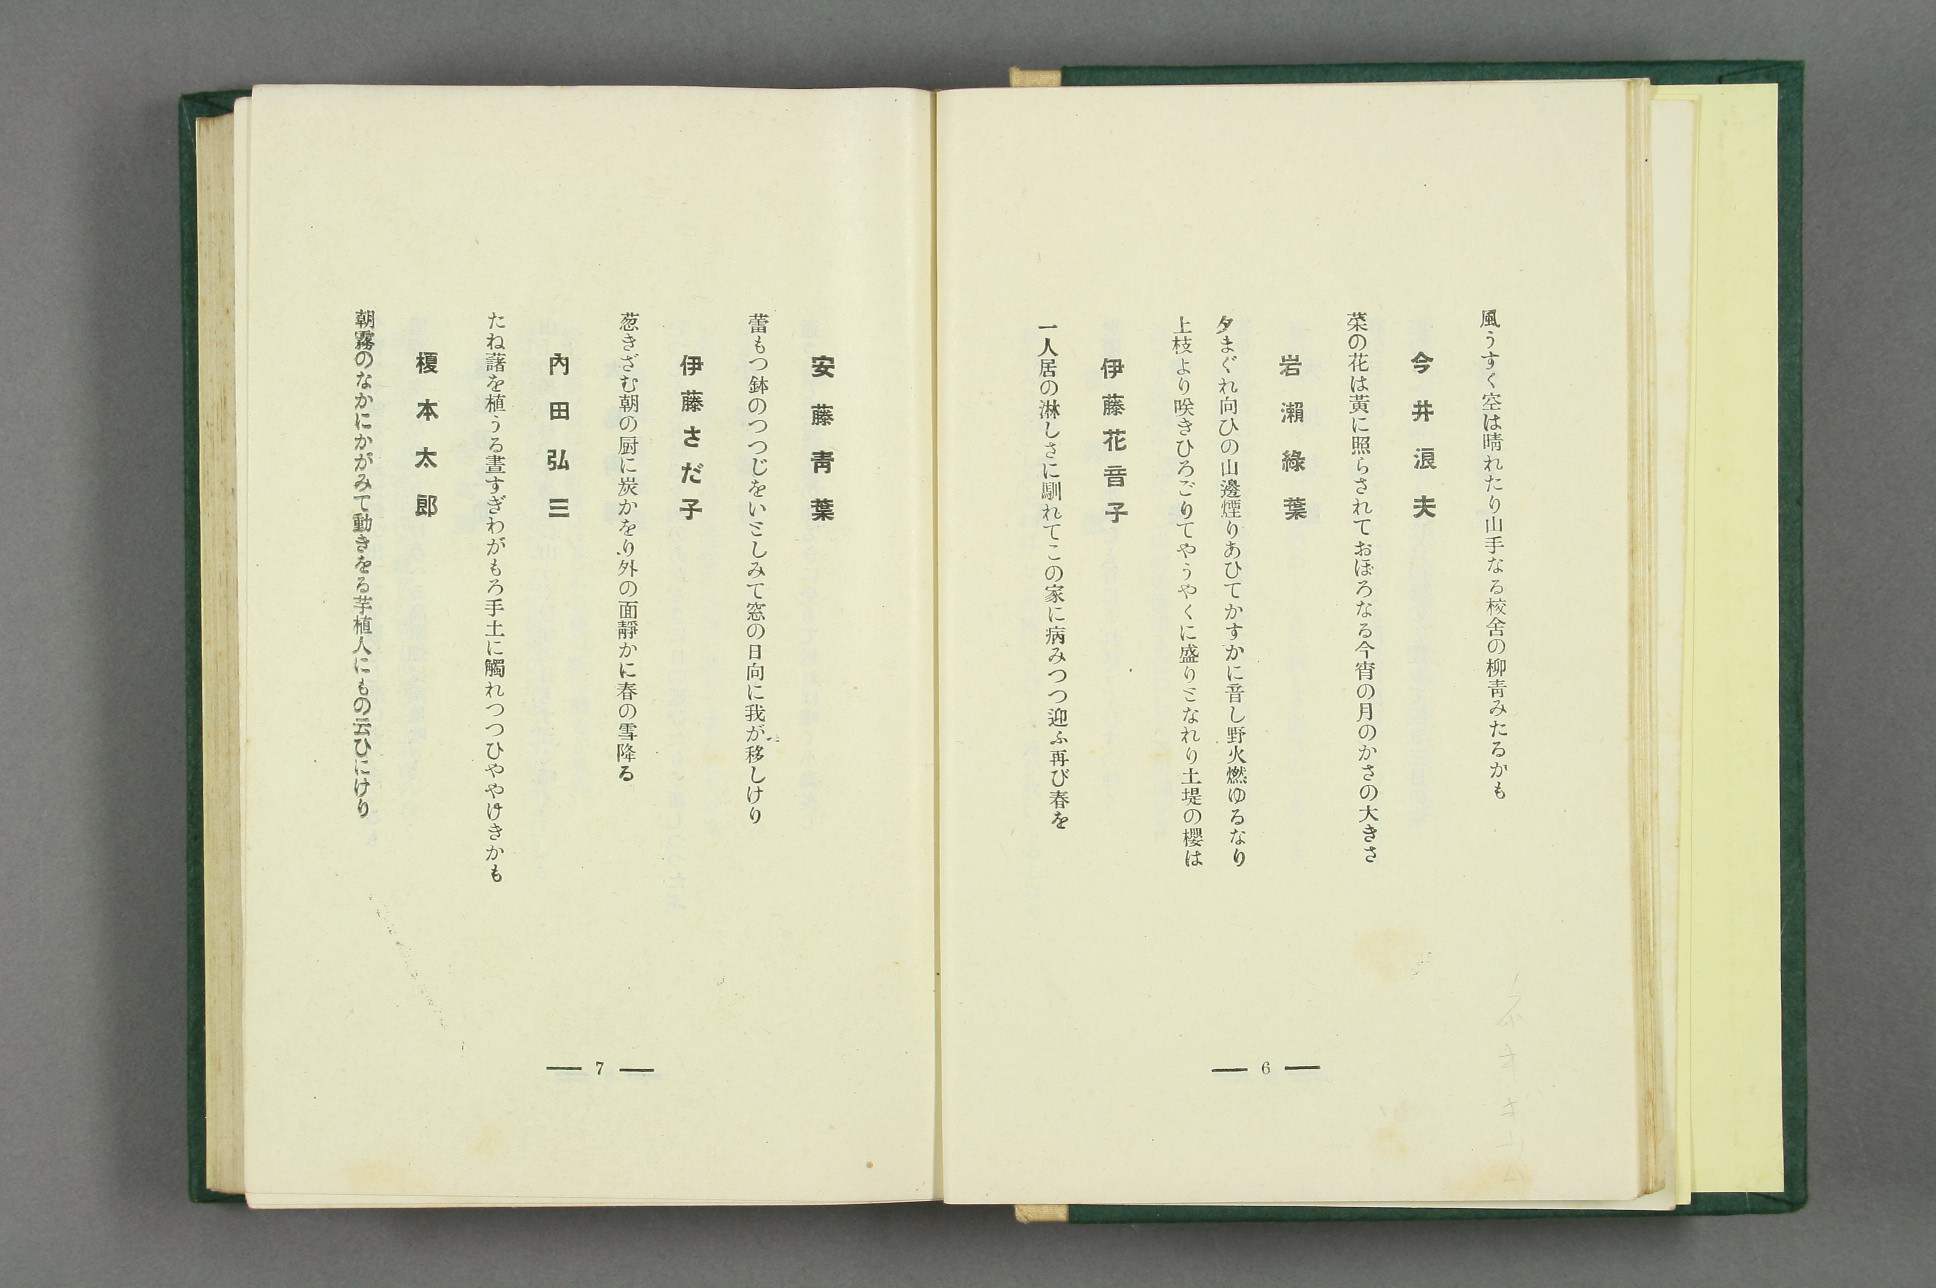 風うすく空は晴れたり山手なる校舍の柳靑みたるかも
今井浪夫
菜の花は黃に照らされておぼろなる今宵の月のかさの大きさ
岩瀨綠葉
夕まぐれ向ひの山邊煙りあひてかすかに音し野火燃ゆるなり
上枝より咲きひろごりてやうやくに盛りとなれり土堤の櫻は
伊藤花音子
一人居の淋しさに馴れてこの家に病みつつ迎ふ再び春を
6
安藤靑葉
蕾もつ鉢のつつじをいとしみて窓の日向に我が移しけり
伊藤さだ子
葱きざむ朝の厨に炭かをり外の面靜かに春の雪降る
內田弘三
たね藷を植うる晝すぎわがもろ手土に觸れつつひややけきかも
榎本太郎
朝霧のなかにかがみて動きをる芋植人にもの云ひにけり
7